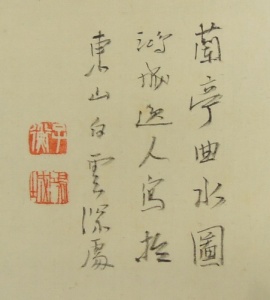 蘭亭曲水圖
鴻城逸人寫於
東山白雲深處